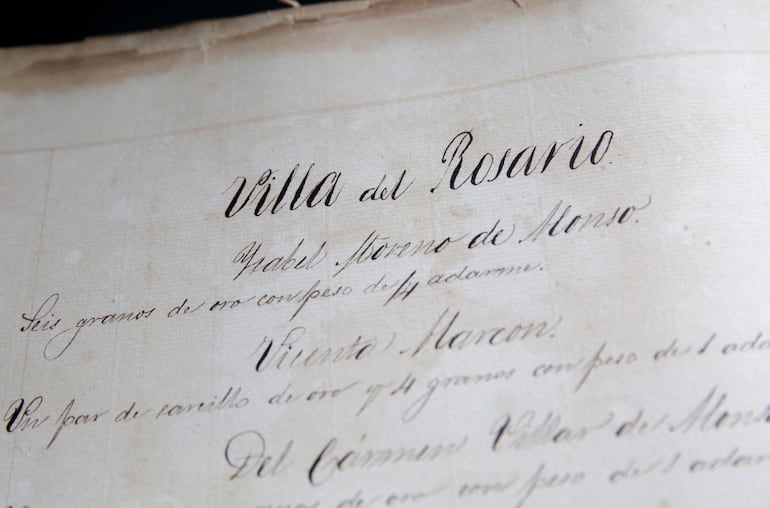 Villa del Rosario.
Ysabel Moreno de Alonso.
Seis granos de oro con peso de 4 adarme.
Vicenta Marcon.
Un par de sarcillo de oro y 4 granos con peso de 1 ada
Del Cármen Villar de Alons
de oro con peso de 1 adar